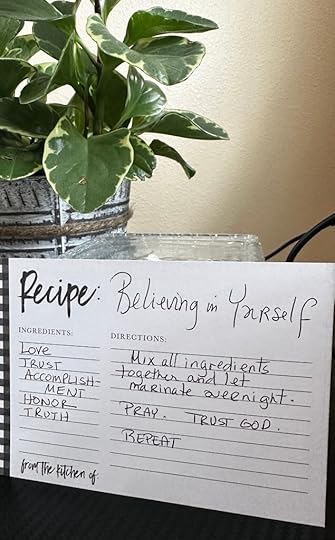 Recipe: Believing in Yourself
INGREDIENTS:
Love
TRUST
ACCOMPLISH-
MENT
HONOR
TRUTH
DIRECTIONS:
Mix all ingredients
together and let
marinate overnight.
PRAY. TRUST GOD.
REPEAT
from the kitchen of: